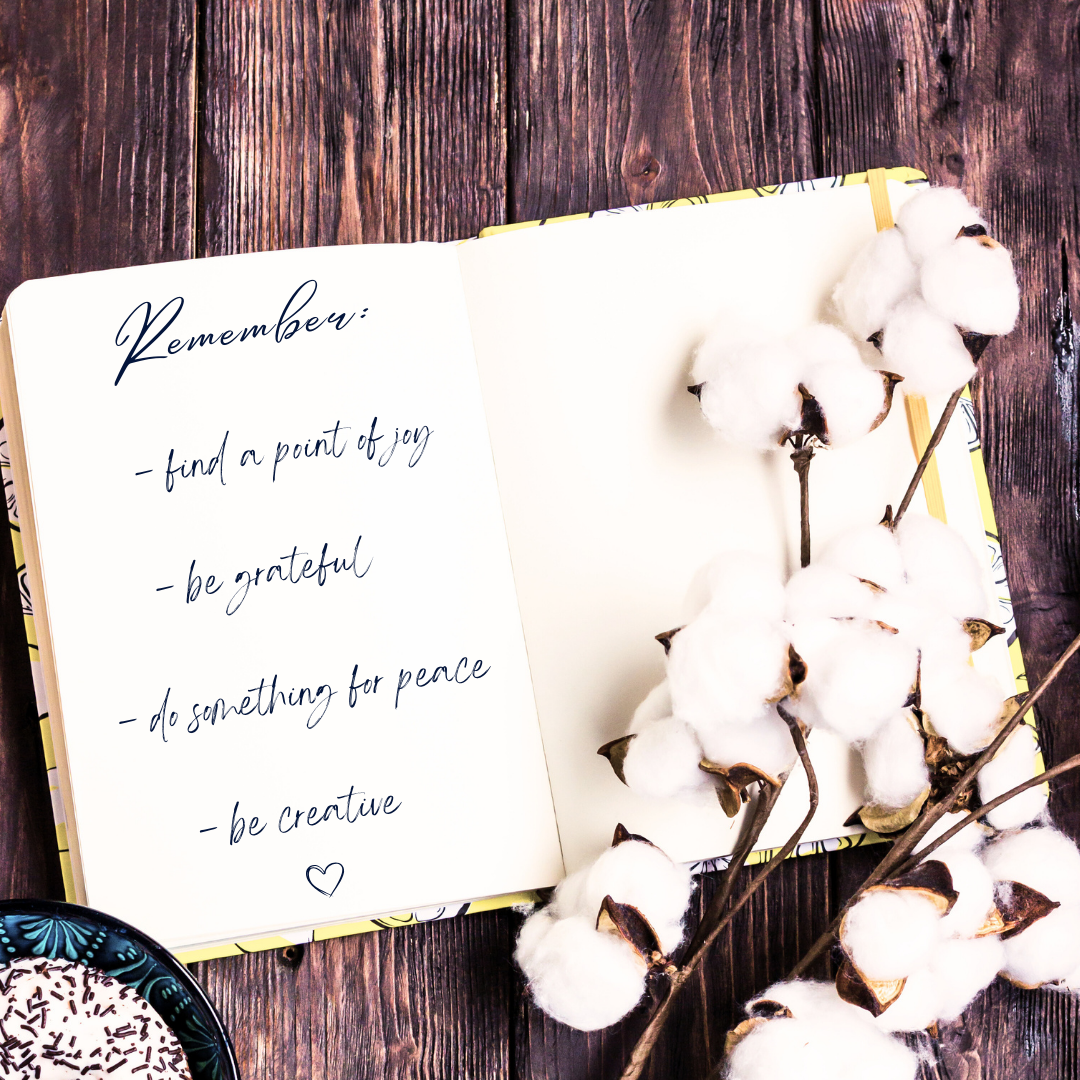 Remember:
- find a point of joy
- be grateful
- do something for peace
- be creative